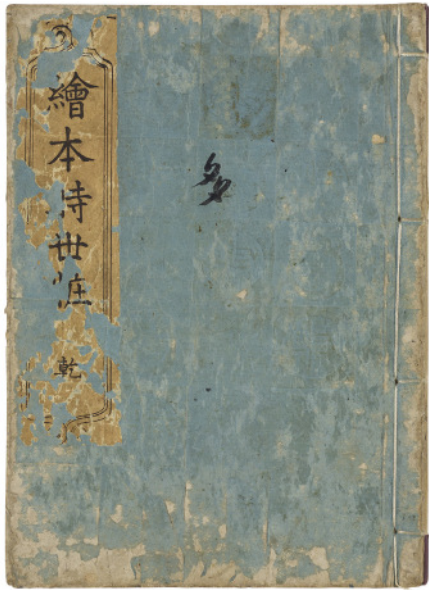 繪本時世粧 乾
多